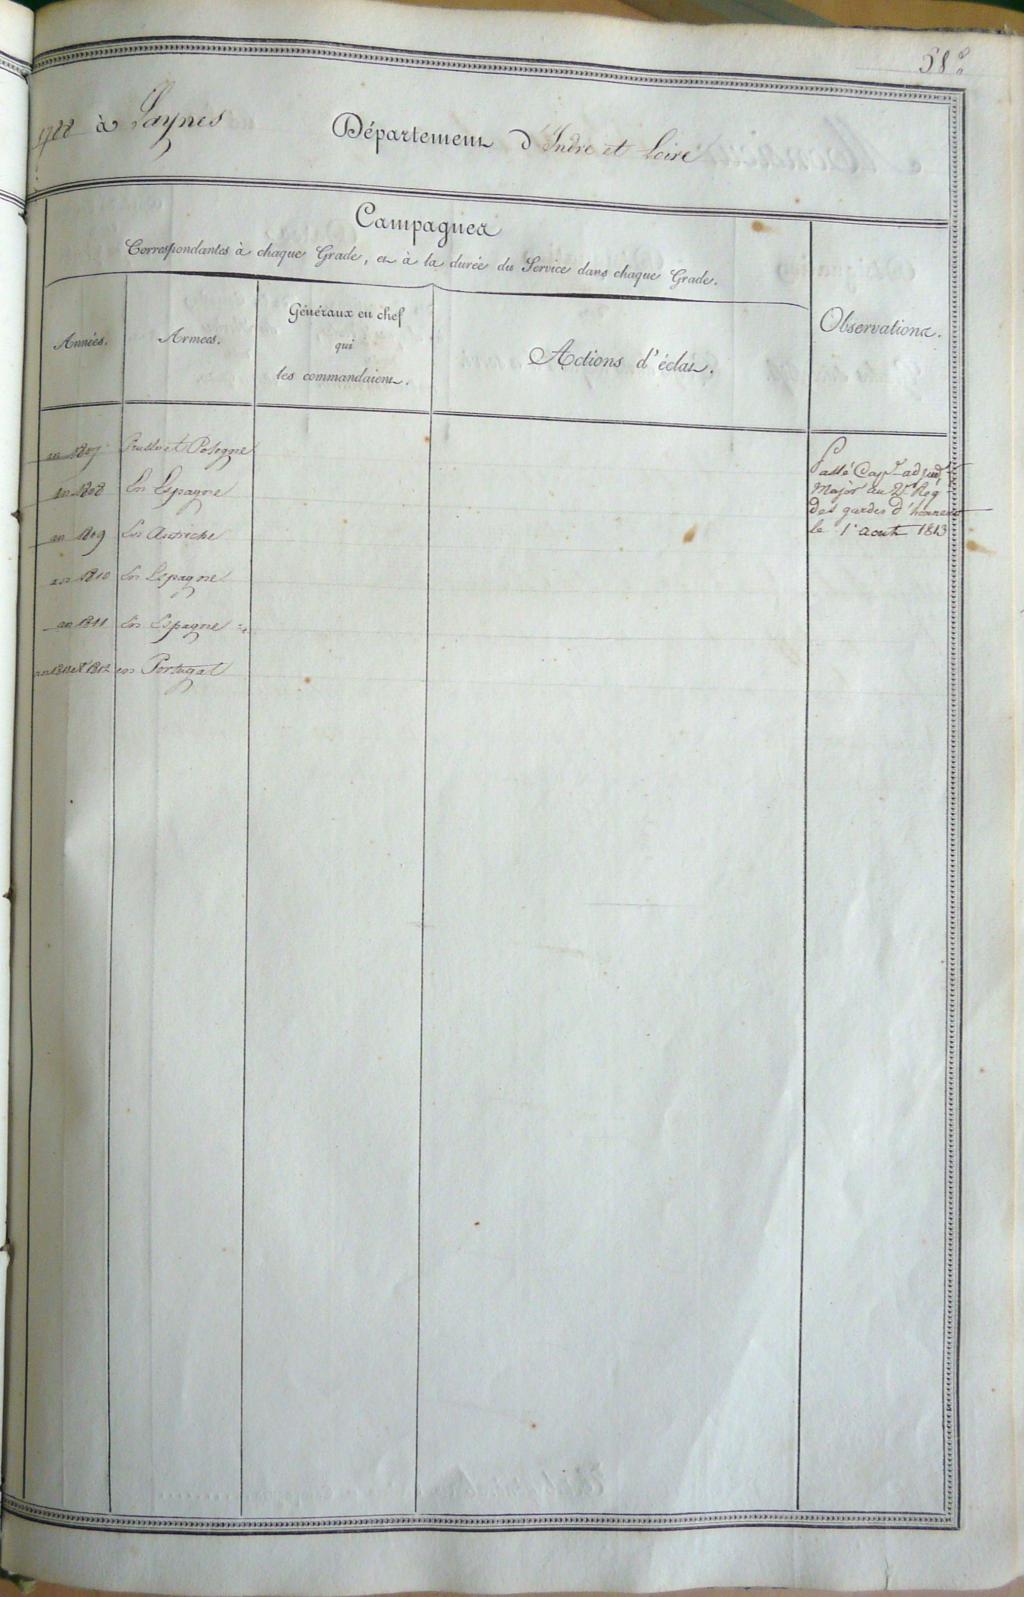 58
1788 à Paynes Département d'Indre et Loire
Campagnes
Correspondantes à chaque Grade, et à la durée du Service dans chaque Grade.
Années.
Armées.
Généraux en chef
qui
les commandaient.
Actions d'éclat.
Observations.
an 1807 Prusse et Pologne
an 1808 En Espagne
an 1809 En Autriche
an 1810 En Espagne
an 1811 En Espagne
1812 en Portugal
Passé Capne adjudt
Major au 2e Reg
des gardes d'honneur
le 1er aout 1813